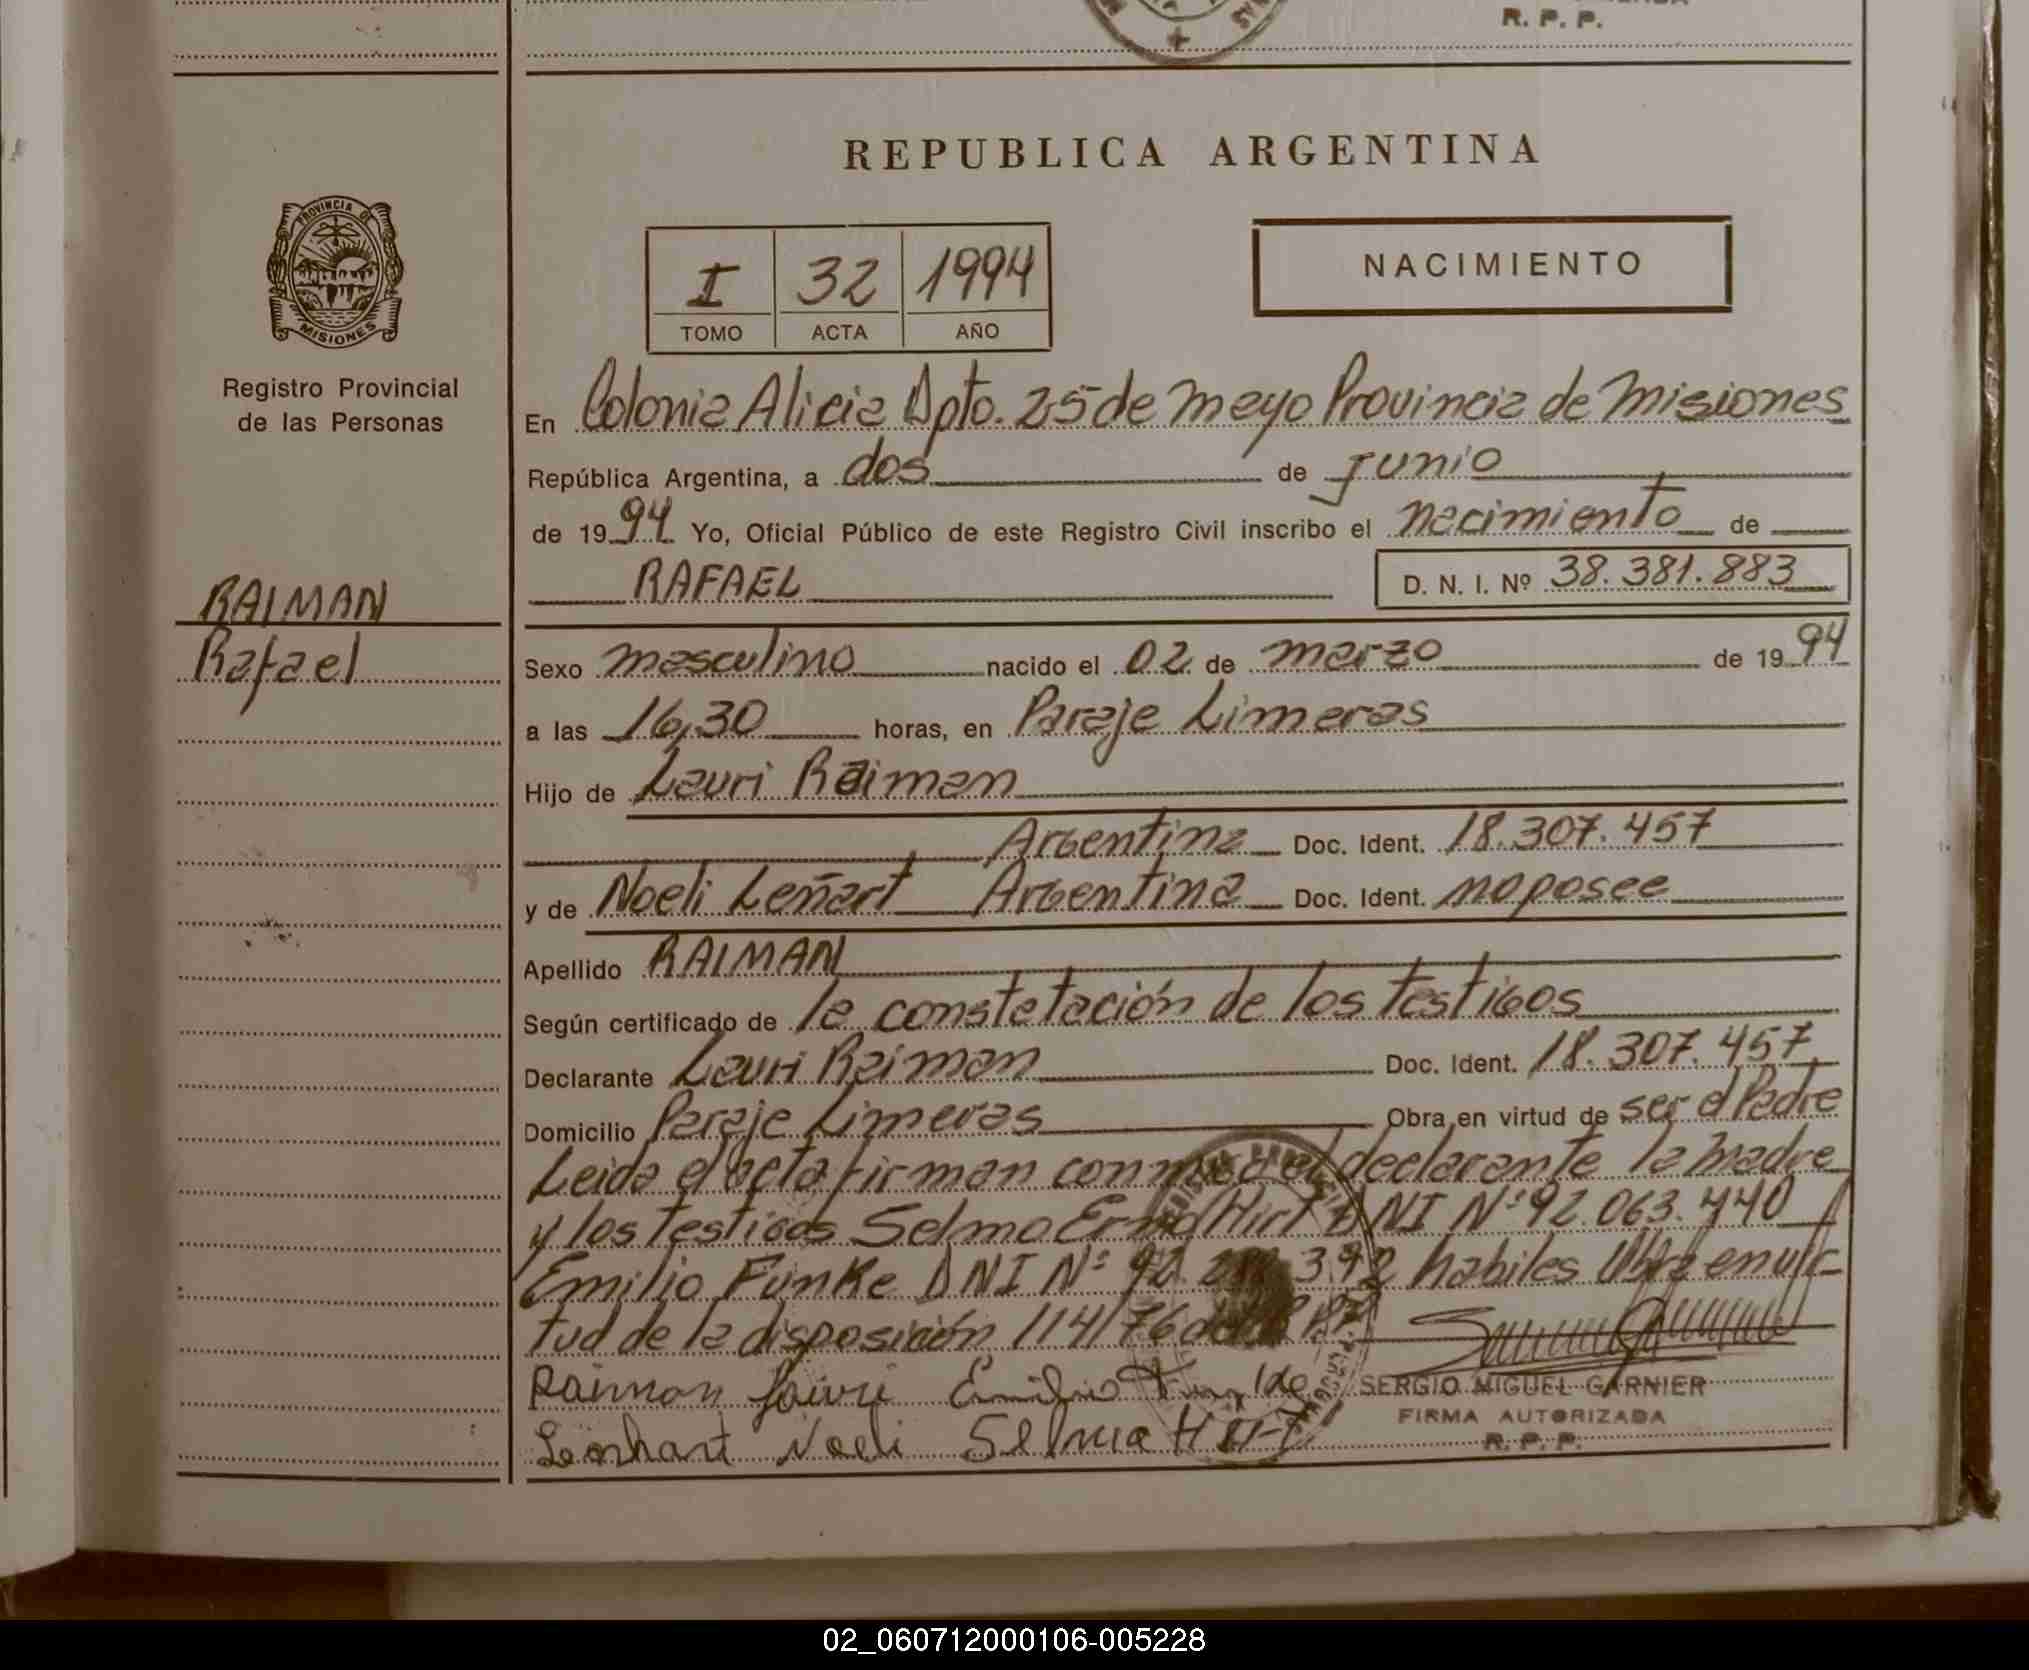 R. P. P.
REPUBLICA ARGENTINA
PROVINCIA DE
MISIONES
I 32 1994
TOMO ACTA AÑO
NACIMIENTO
Registro Provincial
de las Personas
En Colonia Alicia Dpto. 25 de Mayo Provincia de Misiones
República Argentina, a dos de junio
de 1994 Yo, Oficial Público de este Registro Civil inscribo el nacimiento de
RAFAEL D. N. I. Nº 38.381.883
RAIMAN
Rafael
Sexo masculino nacido el 02 de marzo de 1994
a las 16,30 horas, en Paraje Limeras
Hijo de Lauri Raiman
Argentina Doc. Ident. 18.307.457
y de Noeli Leñart Argentina Doc. Ident. no posee
Apellido RAIMAN
Según certificado de la constatación de los testigos
Declarante Lauri Raiman Doc. Ident. 18.307.457
Domicilio Paraje Limeras Obra en virtud de ser el Padre
Leida el acta firman conmigo el declarante la madre
y los testigos Selma Erna Hirt DNI Nº 92.063.440
Emilio Funke DNI Nº 92. 392 habiles Obra en vir-
tud de la disposición 114/76
Raiman Lauri Emilio Funke
SERGIO MIGUEL GARNIER
FIRMA AUTORIZADA
R. P. P.
Lenhart Noeli Selma Hirt
02_060712000106-005228